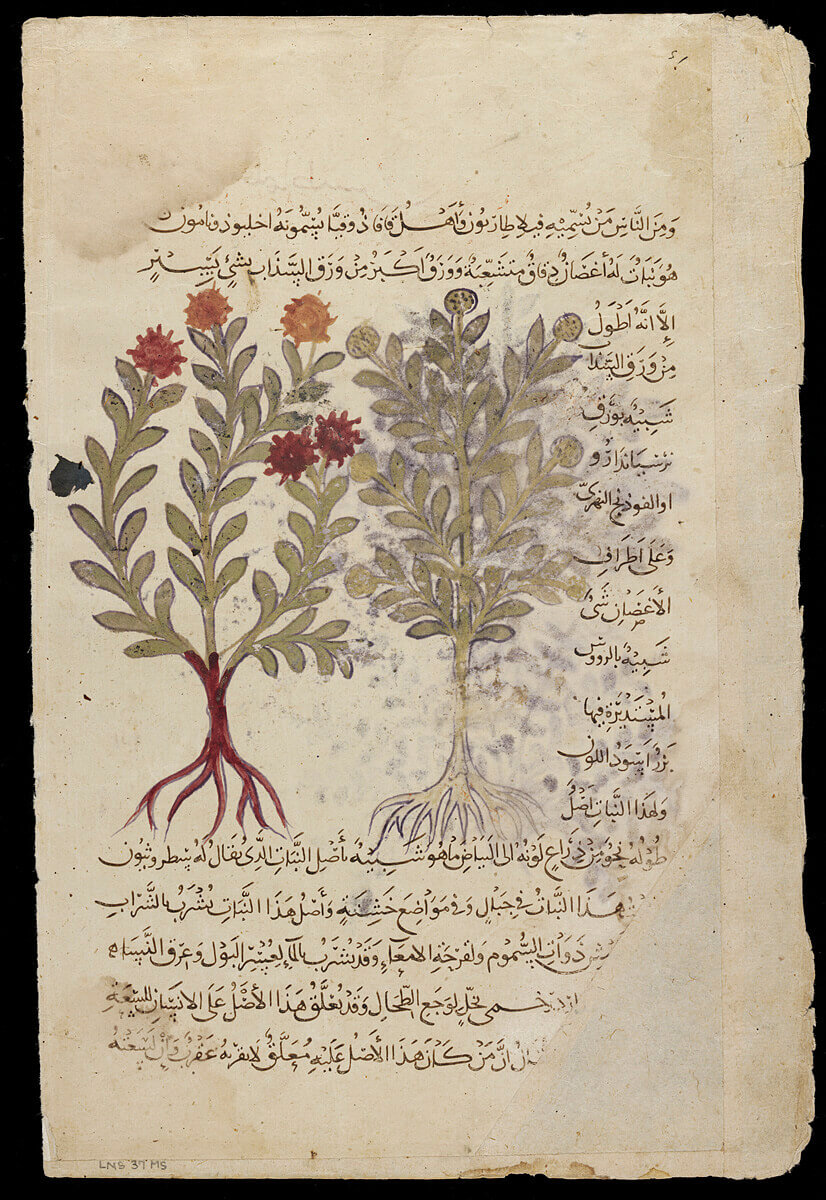 وَمِنَ النَّاسِ مَنْ يُسَمِّيْهِ فيلاطاريون وأَهْلُ قافاذوقيَا يُسَمُّونَهُ اخليوذونامون
هُوَ نَبَاتٌ لَهُ أَغْصَانٌ دِقَاقٌ مُتَشَعِّبَةٌ وَوَرَقٌ اَكْبَرُ مِنْ وَرَقِ السَّذَابِ بِشَيْءٍ يَسِيْرٍ
اِلاَّ اَنَّهُ اَطْوَلُ
مِنْ وَرَقِ السَّذَابِ
شَبِيْهٌ بِوَرَقِ
اوالفوذنج النهرىّ
وَعَلَى اَطْرَافِ
الأَغْصَانِ شَىْءٌ
شَبِيْهٌ بالرووس
المُسْتَدِيْرَةِ فِيهَا
بَزْرٌ اَسْوَدُ اللَّوْنِ
وَلِهَذَا النَّبَاتِ اَصْلٌ
طُولُهُ نَحْوٌ مِنْ ذِرَاعٍ لَوْنُهُ الى البَيَاضِ مَا هُوَ شَبِيْهٌ بأَصْلِ النَّبَاتِ الَّذِى يُقَالُ لَهُ سطروثيون
هَذَا النَّبَاتُ فى جِبَالٍ وَفى مَوَاضِعَ خَشِنَةٍ وَأَصْلُ هَذَا النَّبَاتِ يُشْرَبُ بالشَّرَابِ
ذَوَاتِ السُّمُومِ وَلقرحَةِ الامعَآءِ وَقَدْ يُشْرَبُ بالمَآءِ لِعُسْرِ البَوْلِ وَعِرْقِ النَّسَاءِ
بخَلٍّ لِوَجَعِ الطِّحَالِ وَقَدْ يُعَلَّقُ هَذَا الأَصْلُ عَلَى الانسَانِ للسْعَةِ
اَنَّ مَنْ كَانَ هَذَا الأَصْلُ عَلَيْهِ مُعَلَّقٌ لاَ يَقربهُ عَقْرَبٌ وَاِنْ لَسَعَتْهُ
LNS 37 MS